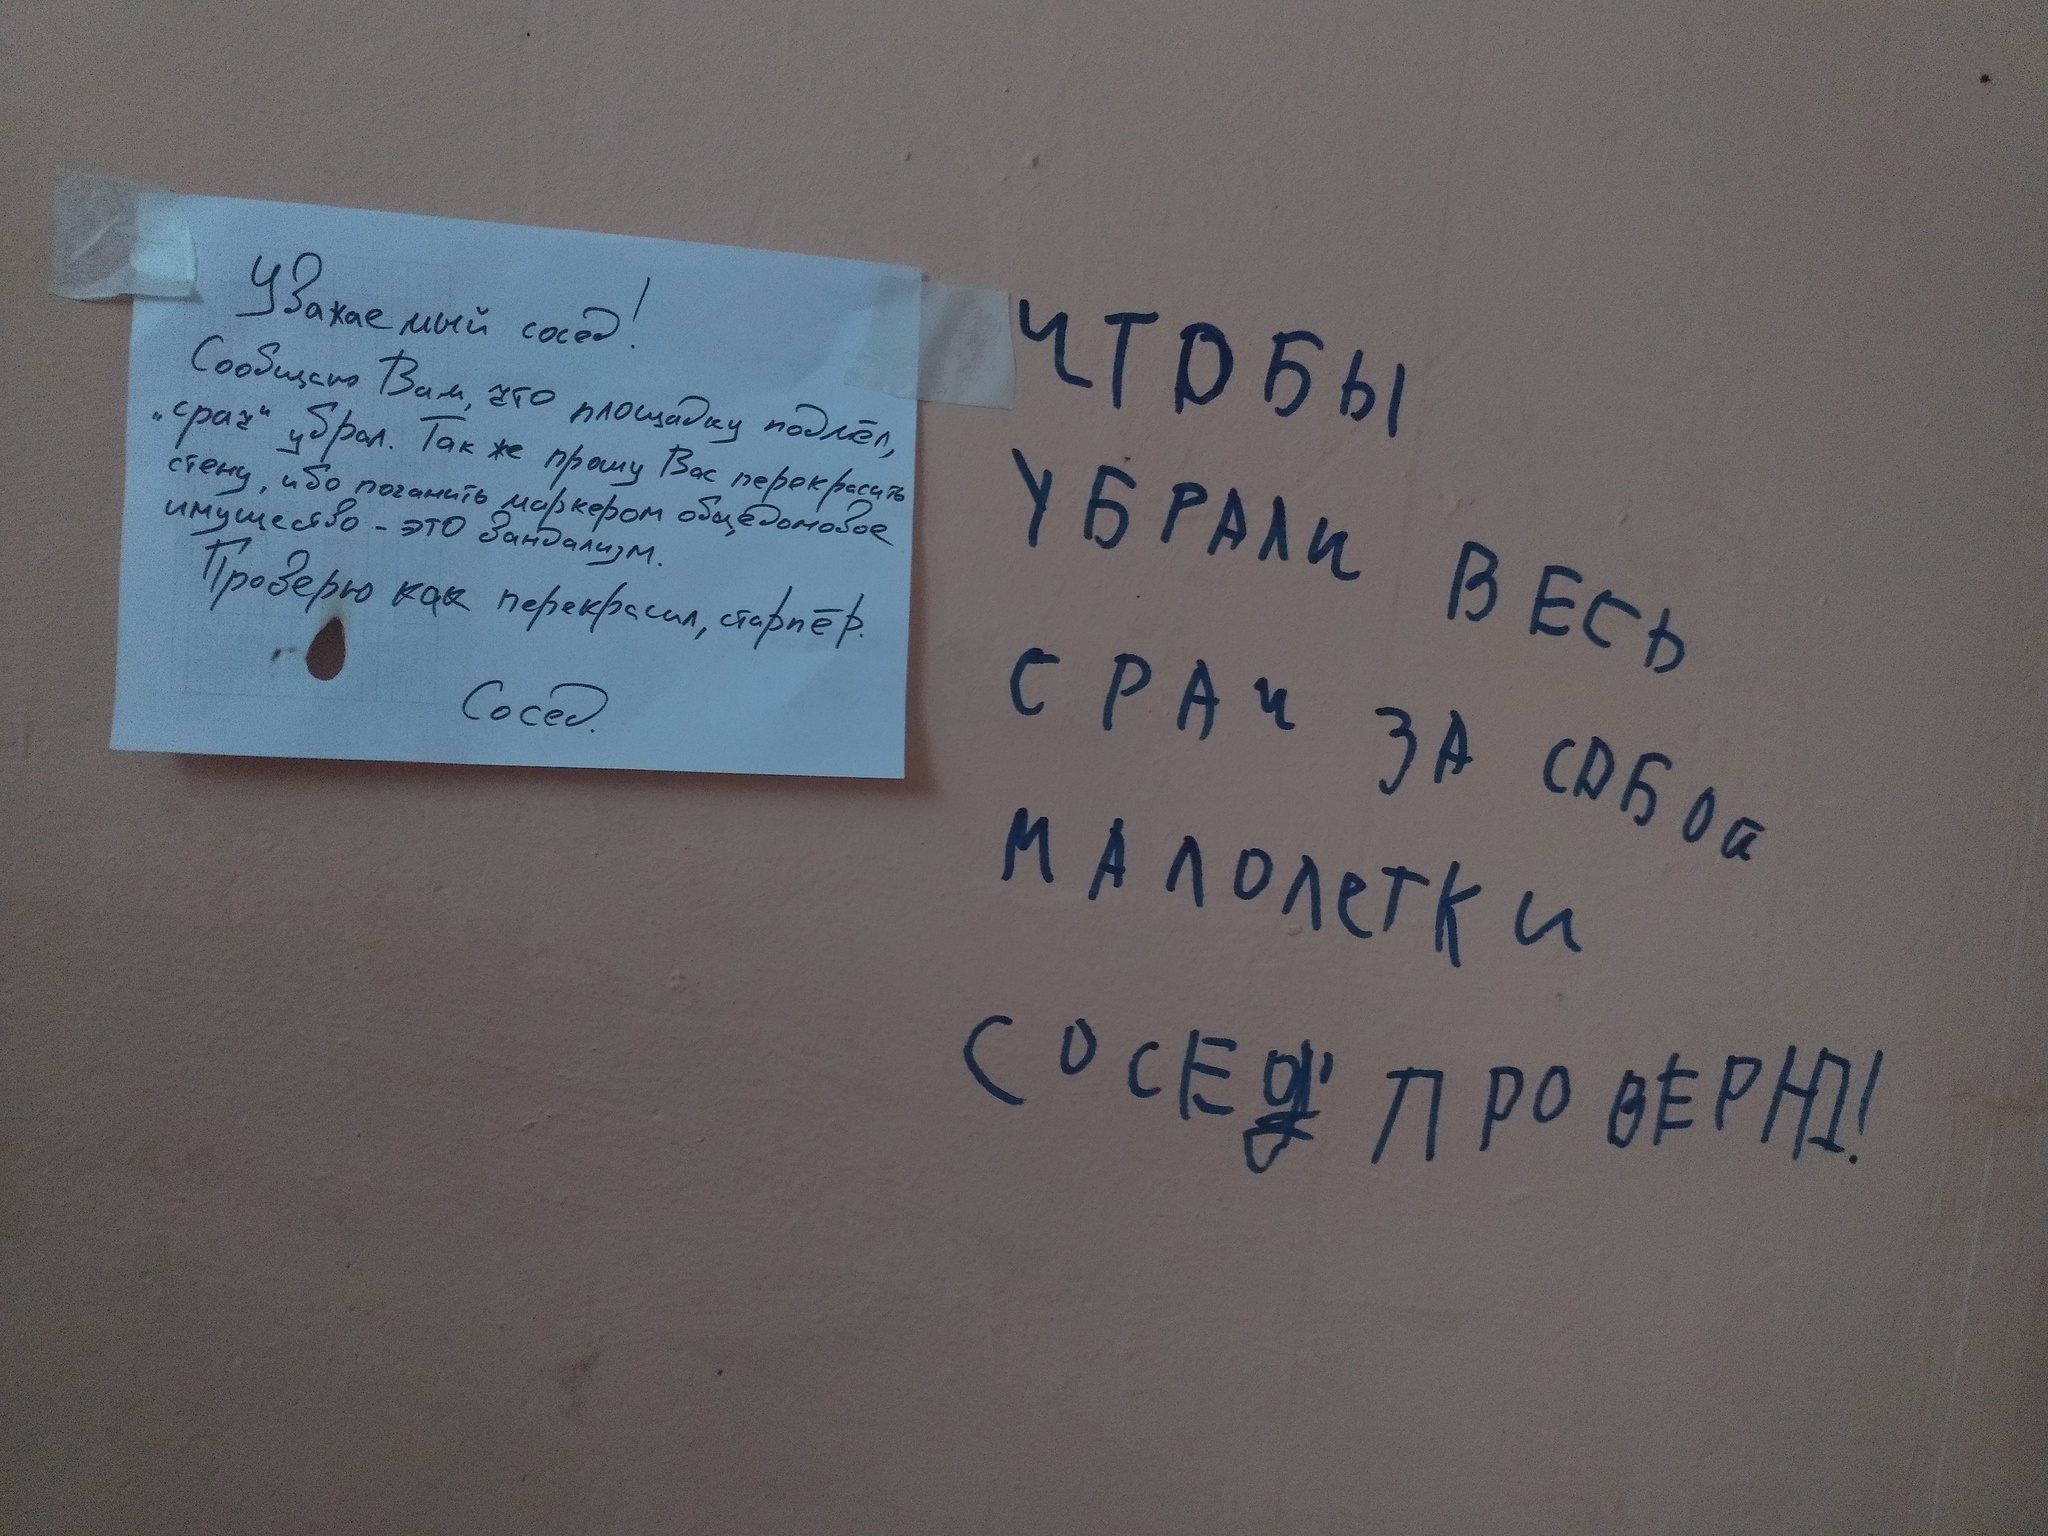 Уважаемый сосед!
Сообщаю Вам, что площадку подмёл,
„срач“ убрал. Так же прошу Вас перекрасить
стену, ибо поганить маркером общедомовое
имущество - это вандализм.
Проверю как перекрасил, старпёр.
Сосед.
ЧТОБЫ
УБРАЛИ ВЕСЬ
СРАЧ ЗА СОБОЙ
МАЛОЛЕТКИ
СОСЕД ПРОВЕРЮ!